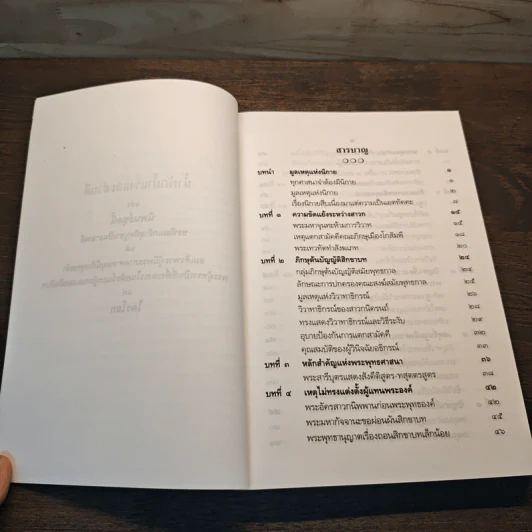 สารบาญ
บทนำ มูลเหตุแห่งนิกาย ๑
ทุกศาสนาจำต้องมีนิกาย ๑
มูลเหตุแห่งนิกาย ๒
เรื่องนิกายสืบเนื่องมาแต่ความเป็นเอตทัคคะ ๗
บทที่ ๑ ความขัดแย้งระหว่างสาวก ๑๕
พระมหาจุนทะห้ามการวิวาท ๑๕
เหตุแตกสามัคคีคณะภิกษุเมืองโกสัมพี ๑๗
พระเทวทัตทำสังฆเภท ๒๐
บทที่ ๒ ภิกษุต้นบัญญัติสิกขาบท ๒๔
กลุ่มภิกษุต้นบัญญัติสมัยพุทธกาล ๒๔
ลักษณะการปกครองคณะสงฆ์สมัยพุทธกาล ๒๕
มูลเหตุแห่งวิวาทาธิกรณ์
วิวาทาธิกรณ์ของสาวกนิครนถ์ ๒๘
ทรงแสดงวิวาทาธิกรณ์และวิธีระงับ ๒๙
อุบายป้องกันการแตกสามัคคี ๓๒
คุณสมบัติของผู้วินิจฉัยอธิกรณ์
บทที่ ๓ หลักสำคัญแห่งพระพุทธศาสนา ๓๖
พระสารีบุตรแสดงสังคีติสูตร-ทสุตตรสูตร ๓๘
บทที่ ๔ เหตุไม่ทรงแต่งตั้งผู้แทนพระองค์ ๔๒
พระอัครสาวกนิพพานก่อนพระพุทธองค์ ๔๒
พระมหากัจจานะขอผ่อนผันสิกขาบท ๔๕
พระพุทธานุญาตเรื่องถอนสิกขาบทเล็กน้อย ๔๖